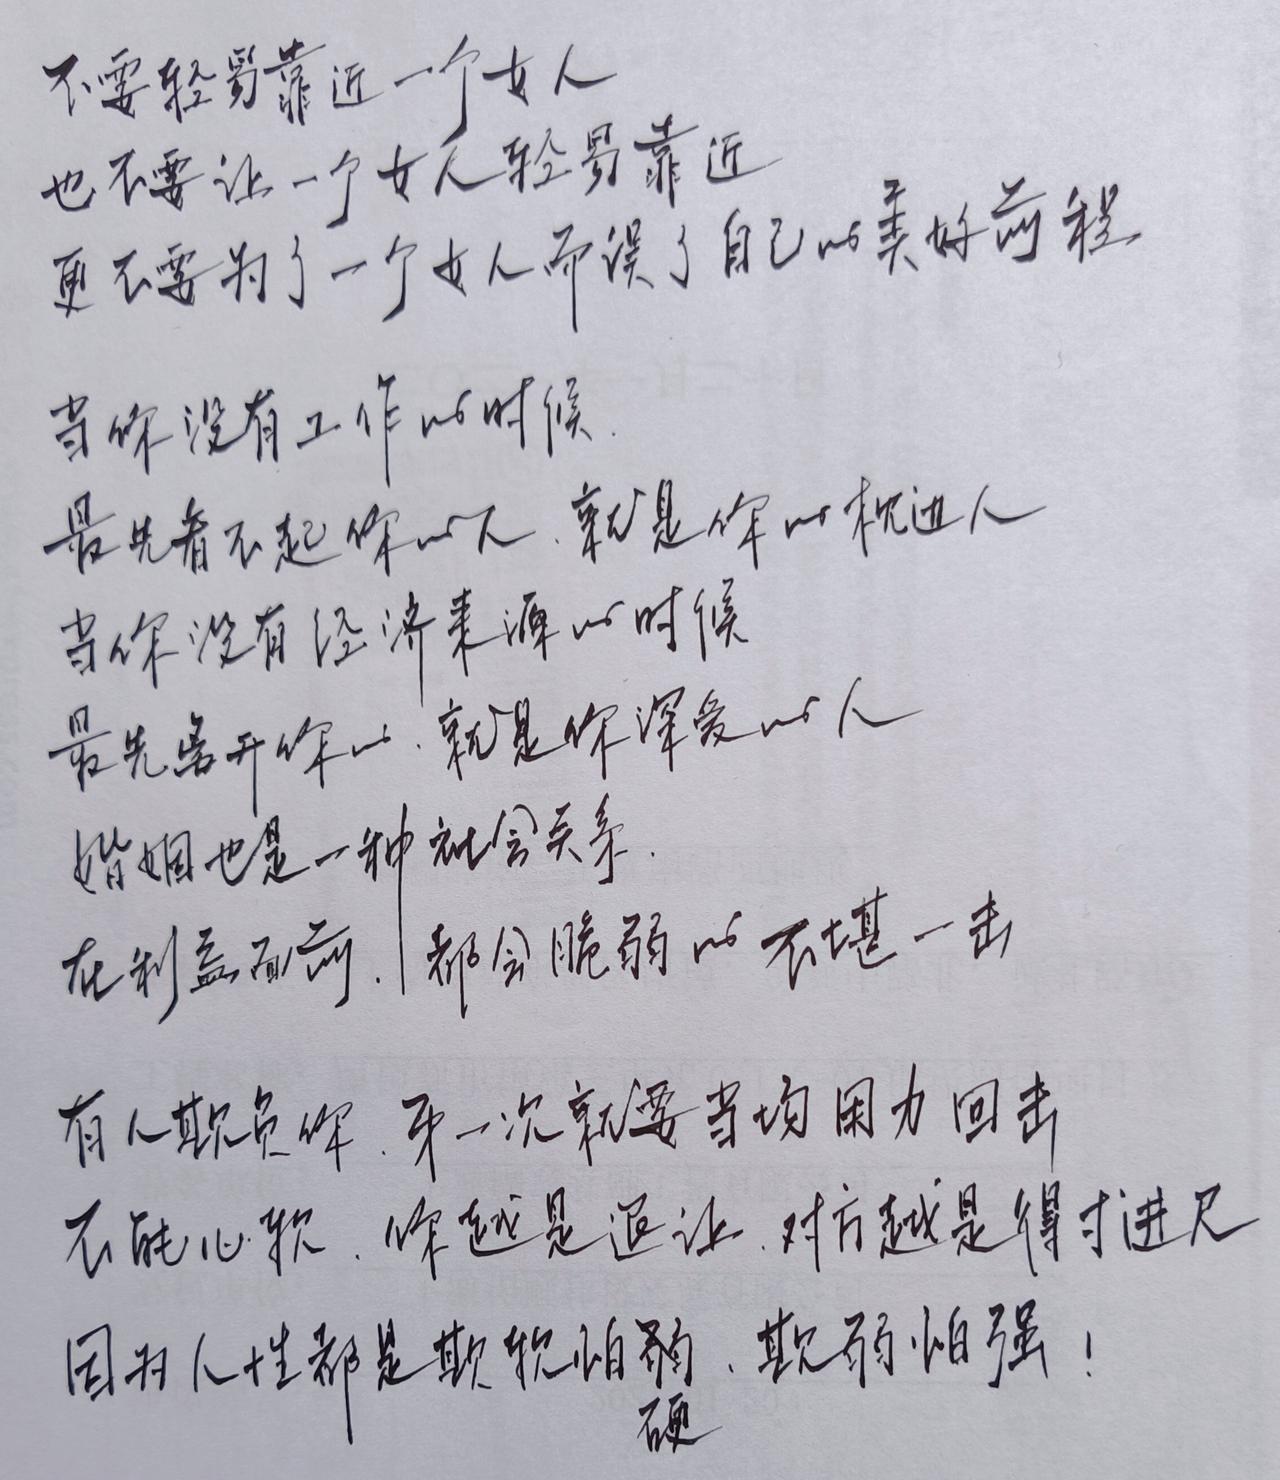 不要轻易靠近一个女人
也不要让一个女人轻易靠近
更不要为了一个女人而误了自己的美好前程
当你没有工作的时候.
最先看不起你的人.就是你的枕边人
当你没有经济来源的时候
最先离开你的.就是你深爱的人
婚姻也是一种社会关系.
在利益面前.都会脆弱的不堪一击
有人欺负你.第一次就要当场用力回击
不能心软.你越是退让.对方越是得寸进尺
因为人性都是欺软怕弱.欺弱怕强!
硬